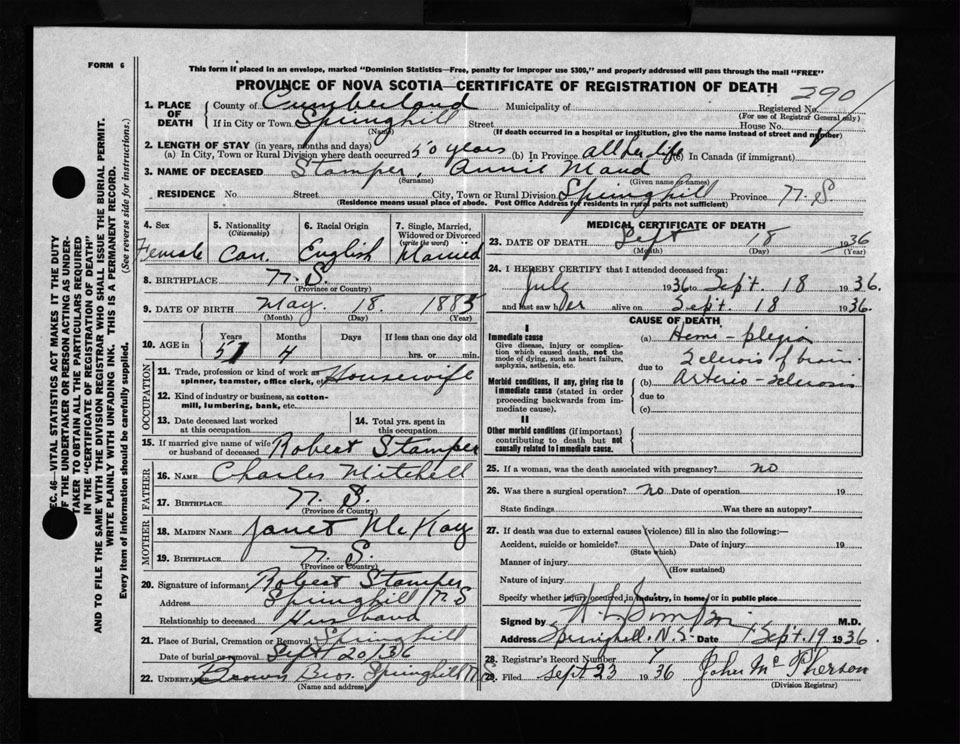 FORM 6
This form if placed in an envelope, marked "Dominion Statistics—Free, penalty for improper use $300," and properly addressed will pass through the mail "FREE"
PROVINCE OF NOVA SCOTIA—CERTIFICATE OF REGISTRATION OF DEATH
3901
1. PLACE OF DEATH
County of Cumberland Municipality of Registered No.
(For use of Registrar General only)
If in City or Town Springhill Street House No.
(Name) (If death occurred in a hospital or institution, give the name instead of street and number)
2. LENGTH OF STAY (in years, months and days)
(a) In City, Town or Rural Division where death occurred 50 years (b) In Province all her life (c) In Canada (if immigrant)
3. NAME OF DECEASED Stamper, Annie Maud
(Surname) (Given name or names)
RESIDENCE No. Street City, Town or Rural Division Springhill Province N. S.
(Residence means usual place of abode. Post Office Address for residents in rural parts not sufficient)
4. Sex 5. Nationality (Citizenship) 6. Racial Origin 7. Single, Married, Widowed or Divorced (write the word)
Female Can. English Married
8. BIRTHPLACE N. S.
(Province or Country)
9. DATE OF BIRTH May. 18. 1885
(Month) (Day) (Year)
10. AGE in Years Months Days If less than one day old
51 4 hrs. or min.
OCCUPATION
11. Trade, profession or kind of work as spinner, teamster, office clerk, etc. Housewife
12. Kind of industry or business, as cotton-mill, lumbering, bank, etc.
13. Date deceased last worked at this occupation 14. Total yrs. spent in this occupation
15. If married give name of wife or husband of deceased Robert Stamper
FATHER
16. NAME Charles Mitchell
17. BIRTHPLACE N. S.
(Province or Country)
MOTHER
18. MAIDEN NAME Janet McKay
19. BIRTHPLACE N. S.
(Province or Country)
20. Signature of informant Robert Stamper
Address Springhill N S
Relationship to deceased Husband
21. Place of Burial, Cremation or Removal Springhill
Date of burial or removal Sept 20/36
22. UNDERTAKER Brown Bros. Springhill
(Name and address)
MEDICAL CERTIFICATE OF DEATH
23. DATE OF DEATH Sept 18 1936
(Month) (Day) (Year)
24. I HEREBY CERTIFY that I attended deceased from:
July 1936 to Sept. 18 1936.
and last saw her alive on Sept. 18 1936.
CAUSE OF DEATH
I
Immediate cause
Give disease, injury or complication which caused death, not the mode of dying, such as heart failure, asphyxia, asthenia, etc.
(a) Hemi-plegia
due to Sclerosis of brain.
Morbid conditions, if any, giving rise to immediate cause (stated in order proceeding backwards from immediate cause).
(b) Arterio-sclerosis
due to
(c)
II
Other morbid conditions (if important) contributing to death but not causally related to immediate cause.
25. If a woman, was the death associated with pregnancy? no
26. Was there a surgical operation? no Date of operation 19
State findings Was there an autopsy?
27. If death was due to external causes (violence) fill in also the following:—
Accident, suicide or homicide? Date of injury 19
(State which)
Manner of injury
(How sustained)
Nature of injury
Specify whether injury occurred in industry, in home, or in public place
Signed by M.D.
Address Springhill. N. S. Date Sept. 19 1936.
28. Registrar's Record Number 7
29. Filed Sept 23 1936 John McPherson
(Division Registrar)
SEC. 46—VITAL STATISTICS ACT MAKES IT THE DUTY
OF THE UNDERTAKER OR PERSON ACTING AS UNDER-
TAKER TO OBTAIN ALL THE PARTICULARS REQUIRED
IN THE "CERTIFICATE OF REGISTRATION OF DEATH"
AND TO FILE THE SAME WITH THE DIVISION REGISTRAR WHO SHALL ISSUE THE BURIAL PERMIT.
WRITE PLAINLY WITH UNFADING INK. THIS IS A PERMANENT RECORD.
Every item of information should be carefully supplied. (See reverse side for instructions.)